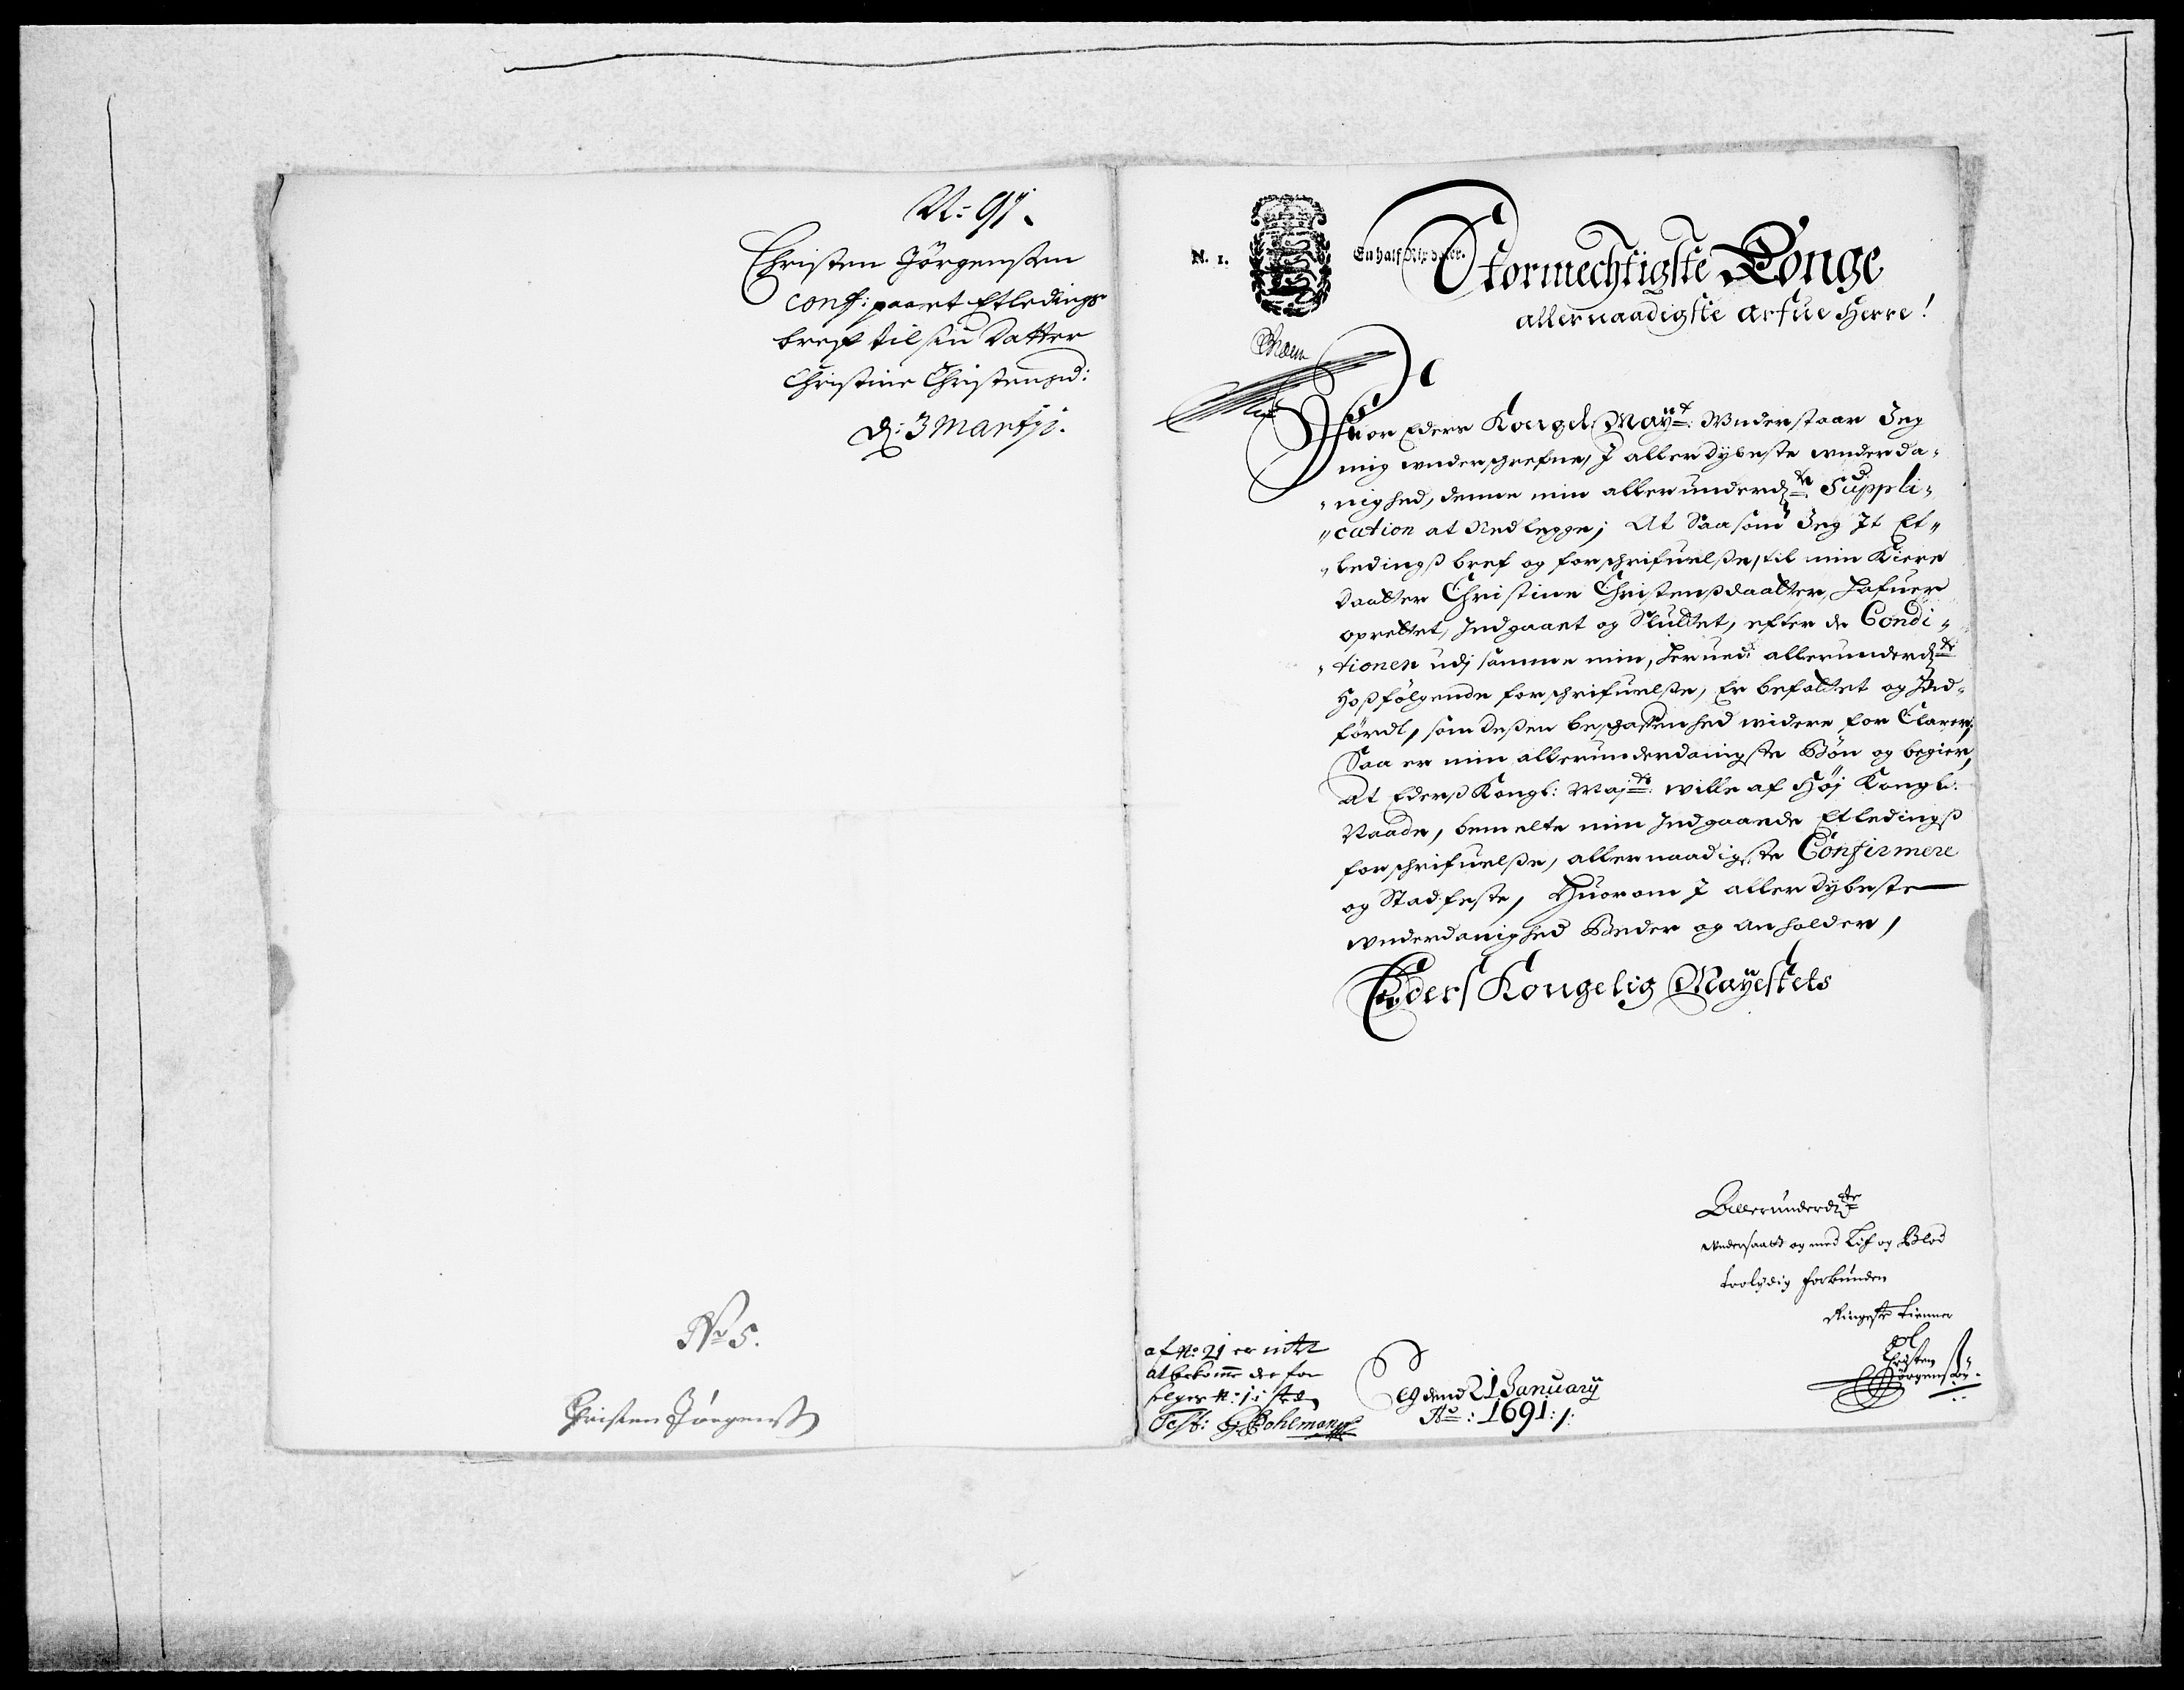 N: 91.
Christen Jörgensen
conf: paa et Etledings
bref til sin Datter
Christine Christensd:
D: 3 Martji.
No 5.
Christen Jörgenss
N. 1.
En half Rixdaler.
Stormechtigste Konge
allernaadigste arfue Herre!
For Eders Kongel: Mayt: Wnderstaar Jeg
mig wnderschrefne, I allerdybeste wnderda-
nighed, denne min allerunderdte Suppli-
cation at Nedlegge; At Saasom Jeg It Et-
ledingsbref og forschrifuelsse, til min Kiere
Daatter Christine Christensdaatter, Hafuer
oprettet, Indgaaet og Sluttet, efter de Condi-
tionen udj samme min, herued allerunderdte
Hosfölgende forschrifuelsse, Er befattet og Ind-
fördt, som dessen beschaffenhed widere for Clarer;
Saa er min allerunderdanigste Bön og begier,
At Eders Kongl: Majts wille af Höj Kongl:
Naade, bemelte min Indgaaende Etledings
forschrifuelsse, allernaadigste Confirmere
og Stadfeste, Huorom I aller dybeste
wnderdanighed Beder og anholder,
Eders Kongelig Mayestets
Allerunderdte
wndersaatt og med Lif og Blod
troligdig forbunden
Ringeste tienner
Christen
Jörgens
af No: 21 er intet
at bekomme der for
selges N: 1 i sted
Test: G. Bohlman
dend 21 January
Ao: 1691:/: